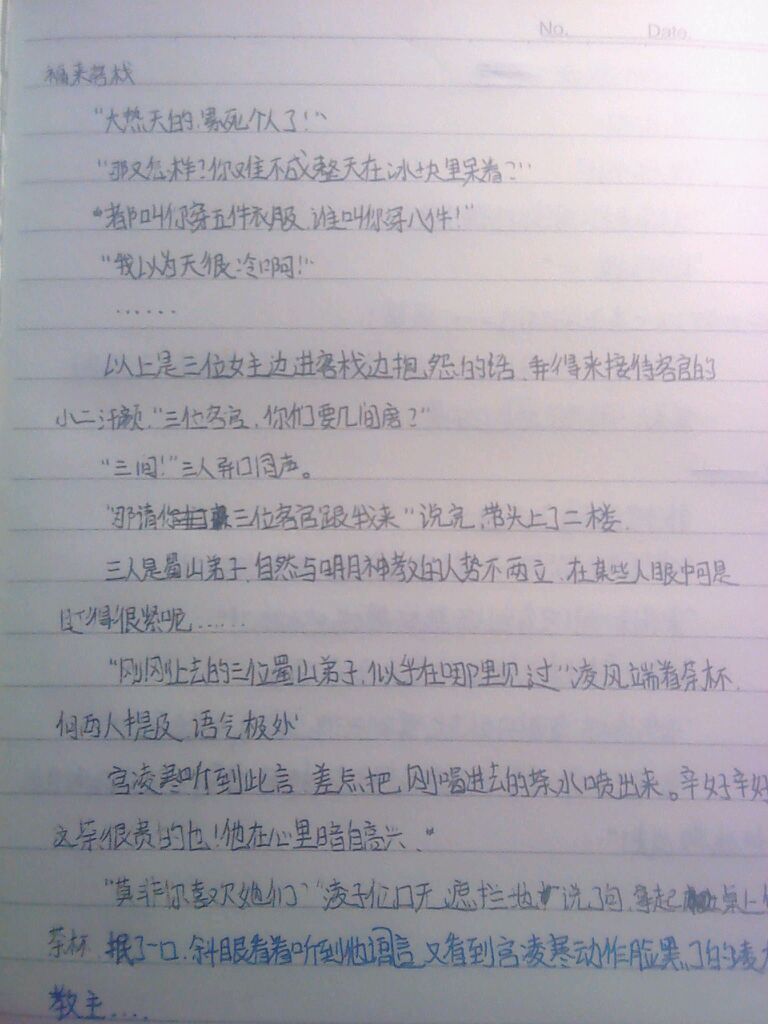 No. Date.
福来客栈
"大热天的,累死个人了!"
"那又怎样?你难不成整天在冰块里呆着?"
"都叫你穿五件衣服,谁叫你穿八件!"
"我以为天很冷啊!"
……
以上是三位女主边进客栈边抱怨的话,弄得来接待客官的
小二汗颜,"三位客官,你们要几间房?"
"三间!"三人异口同声。
"那请你三位客官跟我来"说完,带头上了二楼.
三人是蜀山弟子,自然与明月神教的人势不两立,在某些人眼中可是
盯得很紧呢……
"刚刚上去的三位蜀山弟子,似乎在哪里见过"凌风端着茶杯,
向两人提及,语气极
宫凌寒听到此言,差点把刚喝进去的茶水喷出来。幸好幸好
这茶很贵的也!他在心里暗自高兴."
"莫非你喜欢她们""凌子位口无遮拦地"说了句,拿起桌上
茶杯,抿了一口.斜眼看着听到他语言,又看到宫凌寒动作脸黑了的凌大
教主....